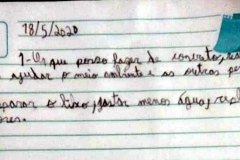 18/5/2020
1-O que posso fazer de concreto,
ajudar o meio ambiente e as outras
parar o lixo, gastar menos água,
ores.